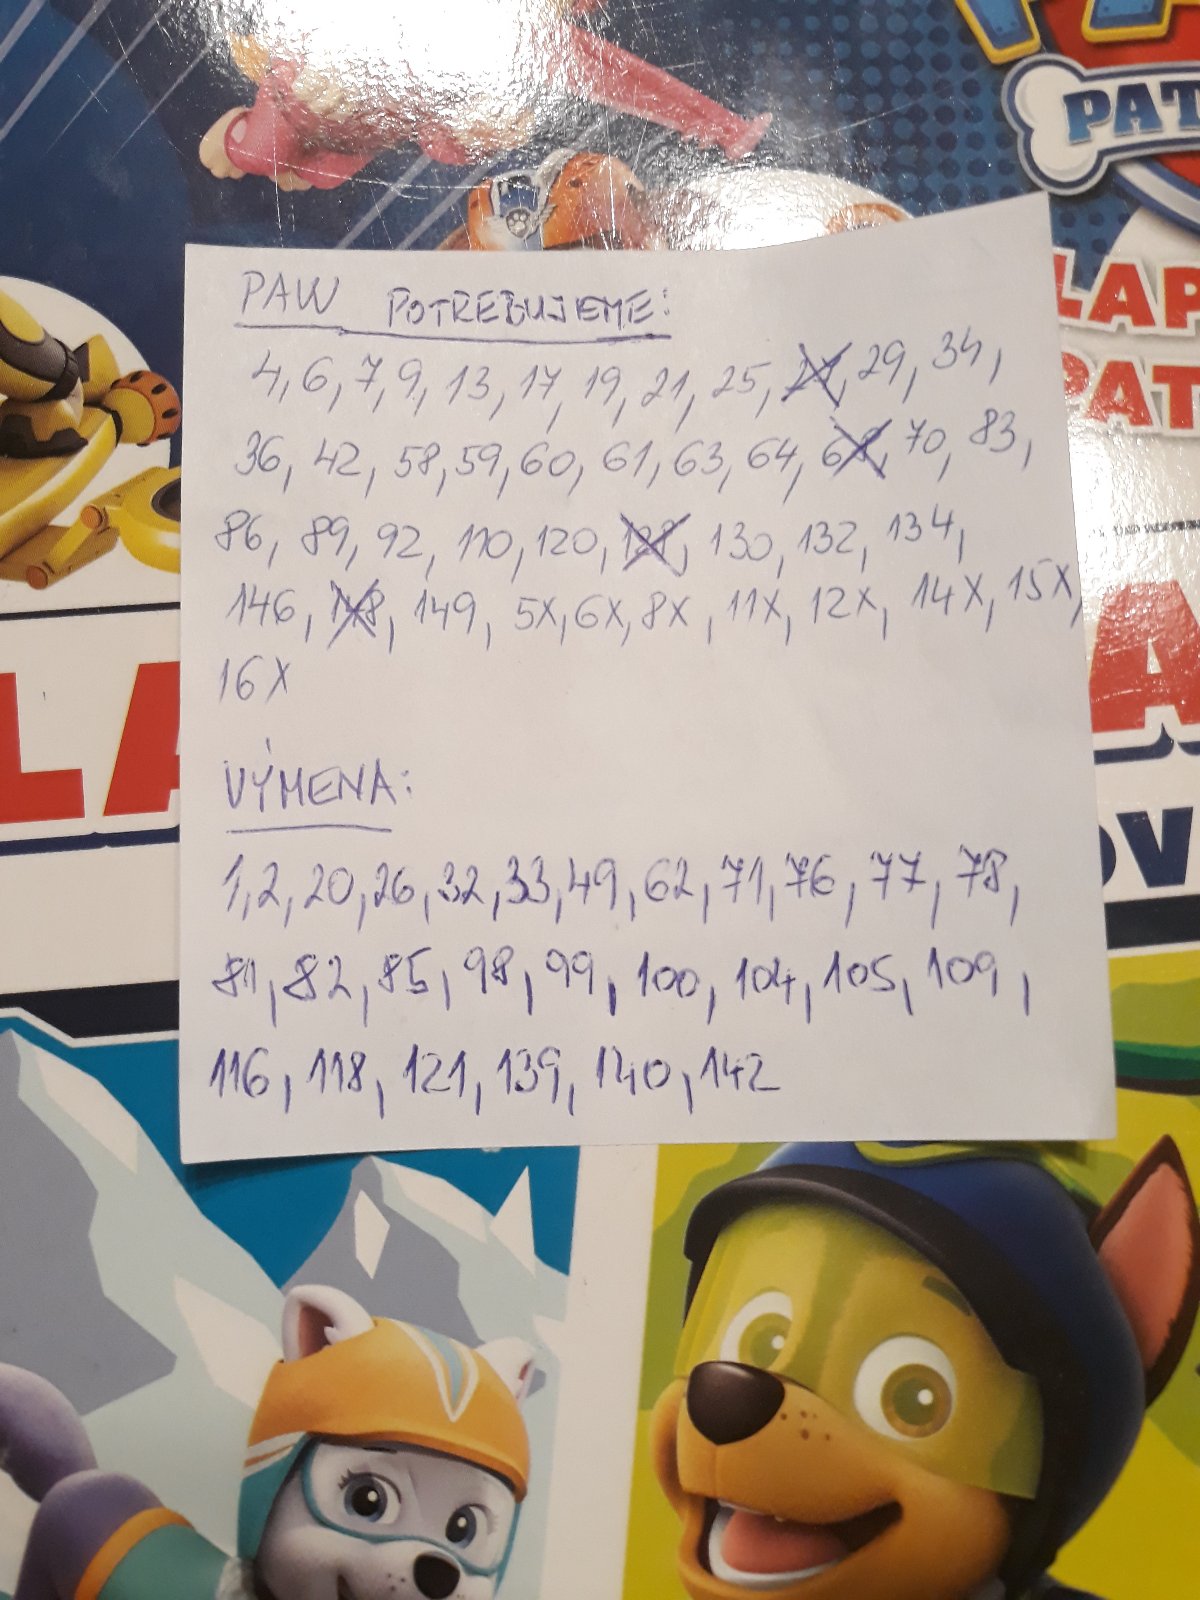 PAT
LAP
PAT
PAW POTREBUJEME:
4, 6, 7, 9, 13, 17, 19, 21, 25, 29, 34,
36, 42, 58, 59, 60, 61, 63, 64, 68, 70, 83,
86, 89, 92, 110, 120, 128, 130, 132, 134,
146, 148, 149, 5X, 6X, 8X, 11X, 12X, 14X, 15X,
16X
LA
A
OV
VÝMENA:
1, 2, 20, 26, 32, 33, 49, 62, 71, 76, 77, 78,
81, 82, 85, 98, 99, 100, 104, 105, 109,
116, 118, 121, 139, 140, 142